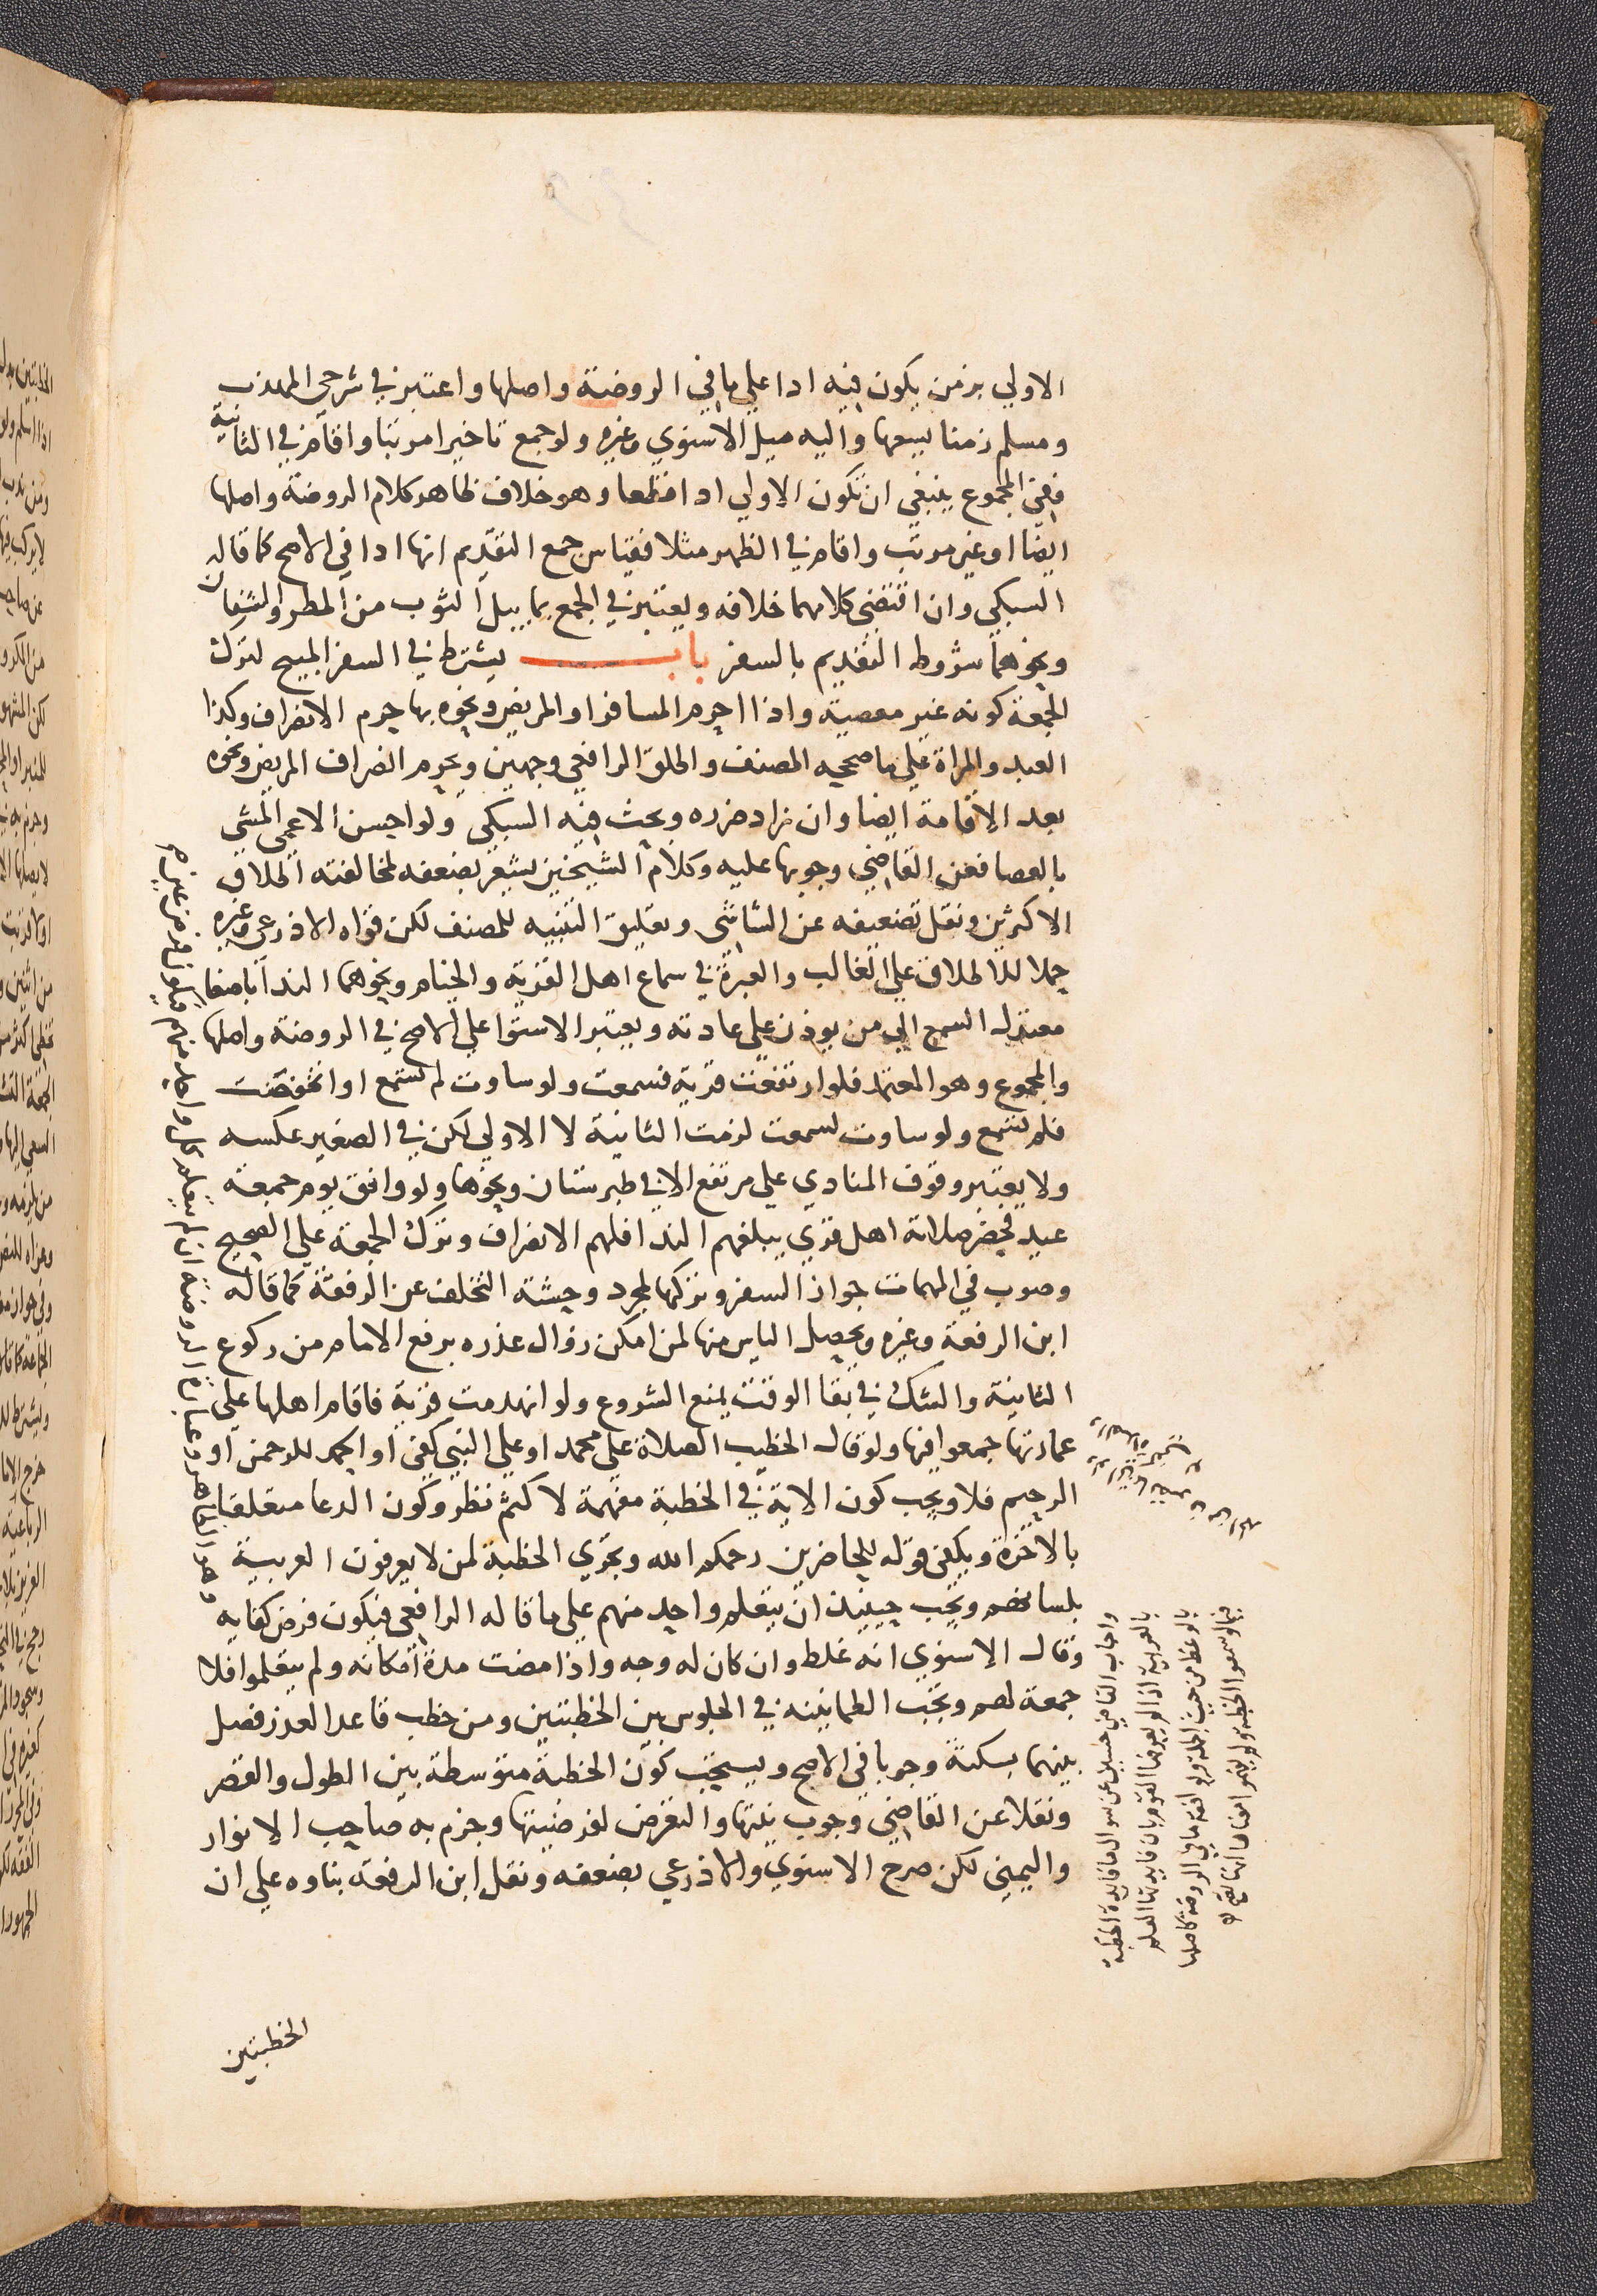 الاولي بزمن يكون فيه ادا علي ما في الروضة واصلها واعتبر في شرحي المهذب
ومسلم زمنا يسعها واليه ميل الاسنوي وغيره ولو جمع تاخيرا مرتبا واقام في الثانية
ففي المجموع ينبغي ان تكون الاولي ادا قطعا وهو خلاف ظاهر كلام الروضة واصلها
ايضا او غير مرتب واقام في الظهر مثلا فقياس جمع التقديم انها ادا في الاصح كما قاله
السبكي وان اقتضى كلامهما خلافه ويعتبر في الجمع بما يبل الثوب من المطر والشفان
ونحوهما شروط التقديم بالسفر باب يشترط في السفر المبيح لترك
الجمعة كونه غير معصية واذا احرم المسافر او المريض ونحوه بها حرم الانصراف وكذا
العبد والمراة علي ما صححه المصنف واطلق الرافعي وجهين ويحرم انصراف المريض ونحوه
بعد الاقامة ايضا وان زاد ضرره وبحث فيه السبكي ولو احسن الاعمى المشي
بالعصا فعن القاضي وجوبها عليه وكلام الشيخين يشعر بضعفه لمخالفته اطلاق
الاكثرين ونقل تضعيفه عن الشاشي وتعليق التنبيه للمصنف لكن قواه الاذرعي وغيره
حملا للاطلاق علي الغالب والعبرة في سماع اهل القرية والخيام ونحوهما الندا باصغا
معتدل السمع الي من يوذن علي عادته ويعتبر الاستوا علي الاصح في الروضة واصلها
والمجموع وهو المعتمد فلو ارتفعت قرية فسمعت ولو ساوت لم تسمع او انخفضت
فلم تسمع ولو ساوت لسمعت لزمت الثانية لا الاولي لكن في الصغير عكسه
ولا يعتبر وقوف المنادي علي مرتفع الا في طبرستان ونحوها ولو وافق يوم جمعة
عيد فحضر صلاته اهل قرى يبلغهم الندا فلهم الانصراف وترك الجمعة علي الصحيح
وصوب في المهمات جواز السفر وتركها لمجرد وحشة التخلف عن الرفقة كما قاله
ابن الرفعة وغيره ويحصل الياس منها لمن امكن زوال عذره برفع الامام من ركوع
الثانية والشك في بقا الوقت يمنع الشروع ولو انهدمت قرية فاقام اهلها علي
عمارتها جمعوا فيها ولو قال الخطيب الصلاة علي محمد او علي النبي كفى او الحمد للرحمن او
الرحيم فلا ويجب كون الاية في الخطبة مفهمة لا كثم نظر وكون الدعا متعلقا
بالاخرة ويكفي قوله للحاضرين رحمكم الله وتجزي الخطبة لمن لا يعرفون العربية
بلسانهم ويجب حينيذ ان يتعلم واحد منهم علي ما قاله الرافعي فيكون فرض كفايه
وقال الاسنوي انه غلط وان كان له وجه واذا مضت مدة امكانه ولم يتعلموا فلا
جمعة لهم وتجب الطمانينه في الجلوس بين الخطبتين ومن خطب قاعدا لعذر فصل
بينهما بسكتة وجوبا في الاصح ويستحب كون الخطبة متوسطة بين الطول والقصر
ونقلا عن القاضي وجوب نيتها والتعرض لفرضيتها وجزم به صاحب الانوار
واليمني لكن صرح الاسنوي والاذرعي بضعفه ونقل ابن الرفعة بناوه علي ان
الخطبتين
واجاب القاضي حسين عن سوال ما فايدة الخطبة
بالعربية اذا لم يعرفها القوم بان فايدتها العلم
بالوعظ من حيث الجملة ويوافقه ما في الروضة كاصلها
فيما لو سمعوا الخطبة ولم يفهموا معناها انها تصح